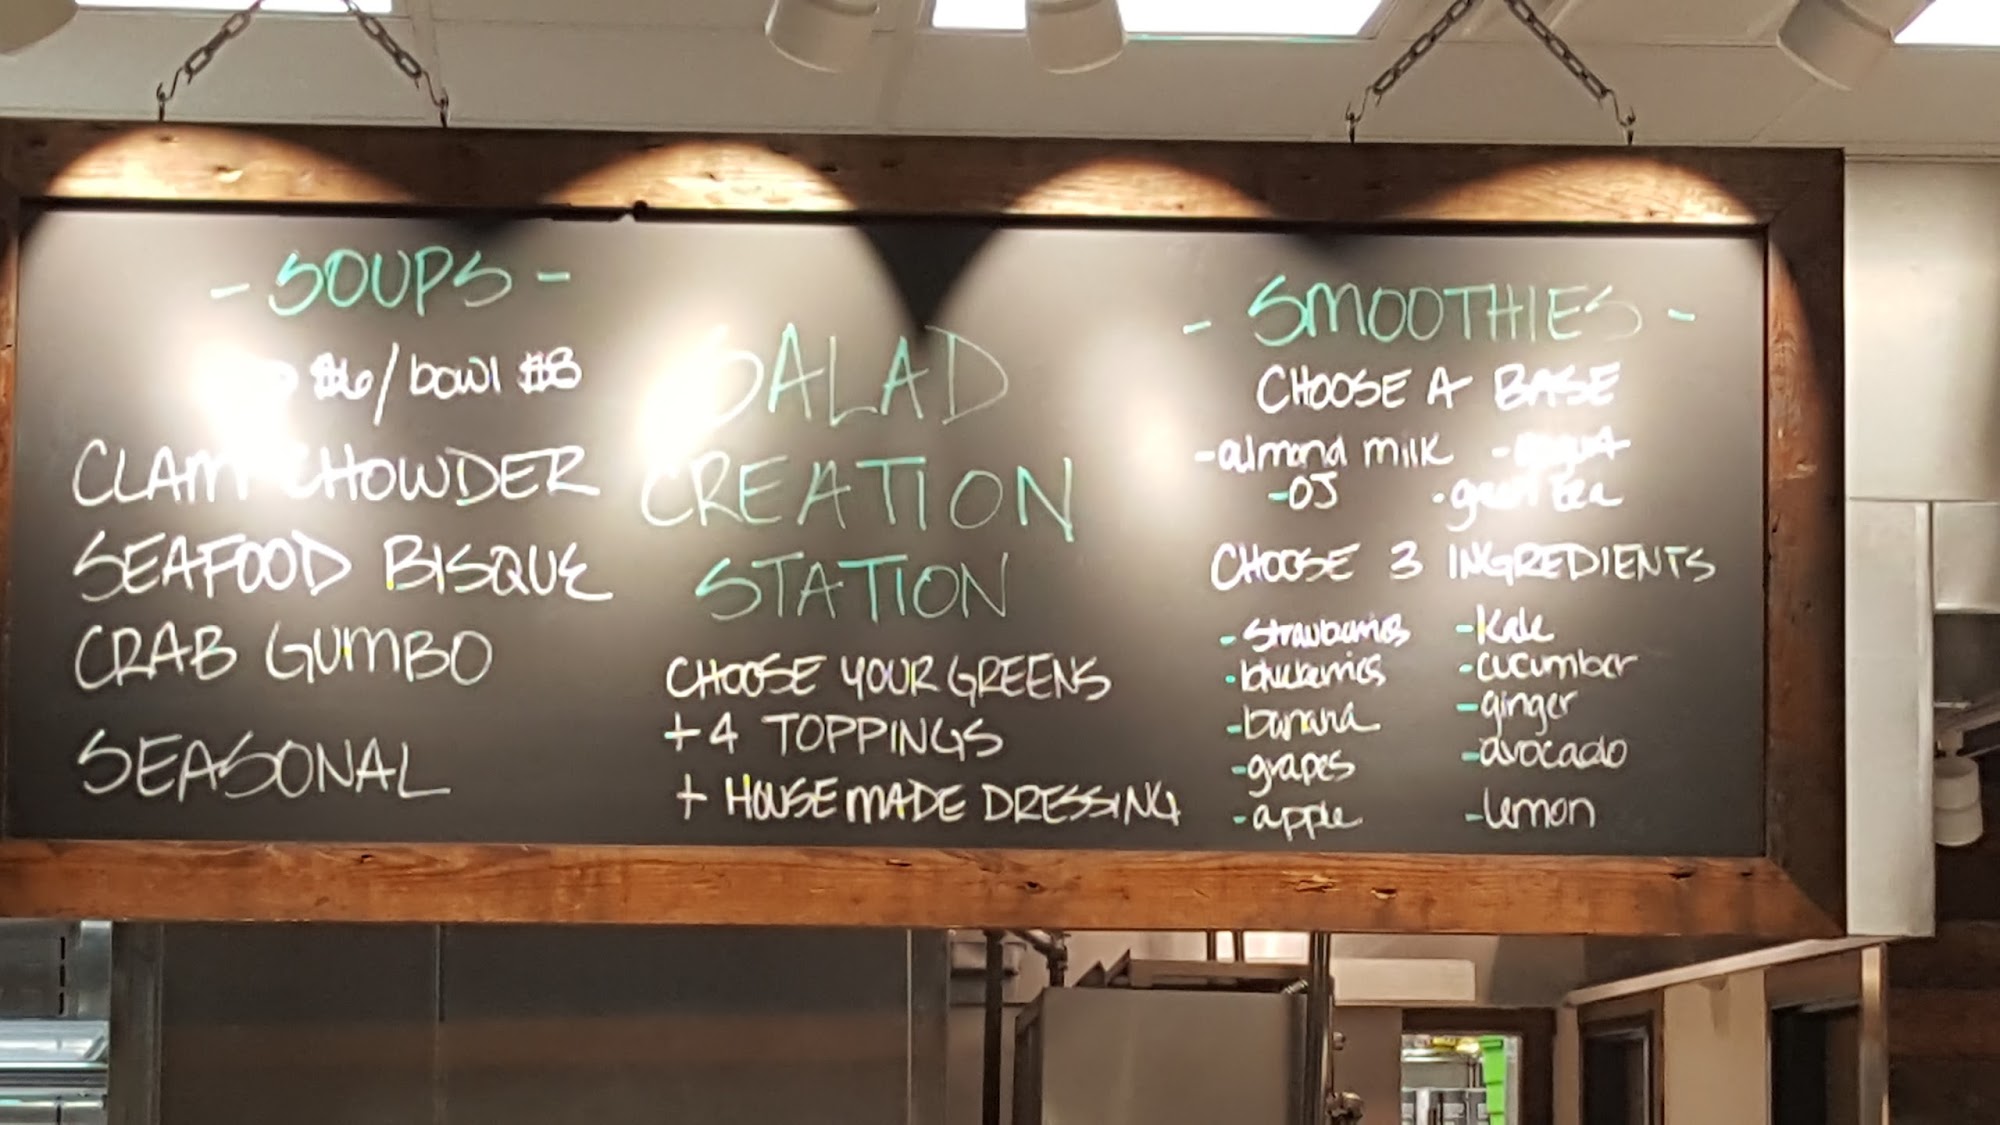 - SOUPS -
$6/bowl $8
CLAM CHOWDER
SEAFOOD BISQUE
CRAB GUMBO
SEASONAL
SALAD
CREATION
STATION
CHOOSE YOUR GREENS
+4 TOPPINGS
+ HOUSEMADE DRESSING
- SMOOTHIES -
CHOOSE A BASE
-almond milk
-OJ -green tea
CHOOSE 3 INGREDIENTS
-strawberries -kale
-blueberries -cucumber
-banana -ginger
-grapes -avocado
-apple -lemon